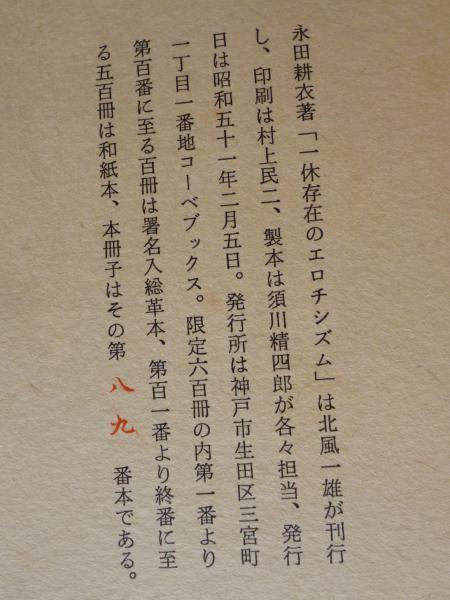 永田耕衣著「一休存在のエロチシズム」は北風一雄が刊行
し、印刷は村上民二、製本は須川精四郎が各々担当、発行
日は昭和五十一年二月五日。発行所は神戸市生田区三宮町
一丁目一番地コーベブックス。限定六百冊の内第一番より
第百番に至る百冊は署名入総革本、第百一番より終番に至
る五百冊は和紙本、本冊子はその第 八九 番本である。